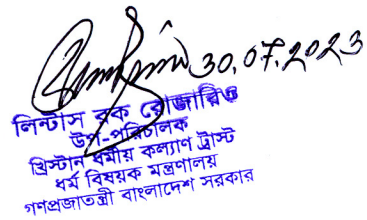 30.07.2023
লিন্টাস রক রোজারিও
উপ-পরিচালক
খ্রিস্টান ধর্মীয় কল্যাণ ট্রাস্ট
ধর্ম বিষয়ক মন্ত্রণালয়
গণপ্রজাতন্ত্রী বাংলাদেশ সরকার